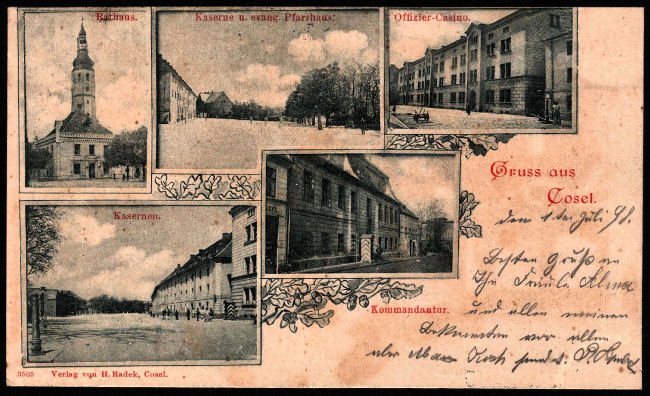 Rathaus.
Kaserne u. evang. Pfarrhaus.
Offizier-Casino.
Gruss aus
Cosel.
den 1ten Juli 98.
Besten Gruß an
Ihr Fräula Alma
und allen meinen
Bekannten vor allen
aber
sendet
Kasernen.
Kommandantur.
3505 Verlag von H. Radek, Cosel.